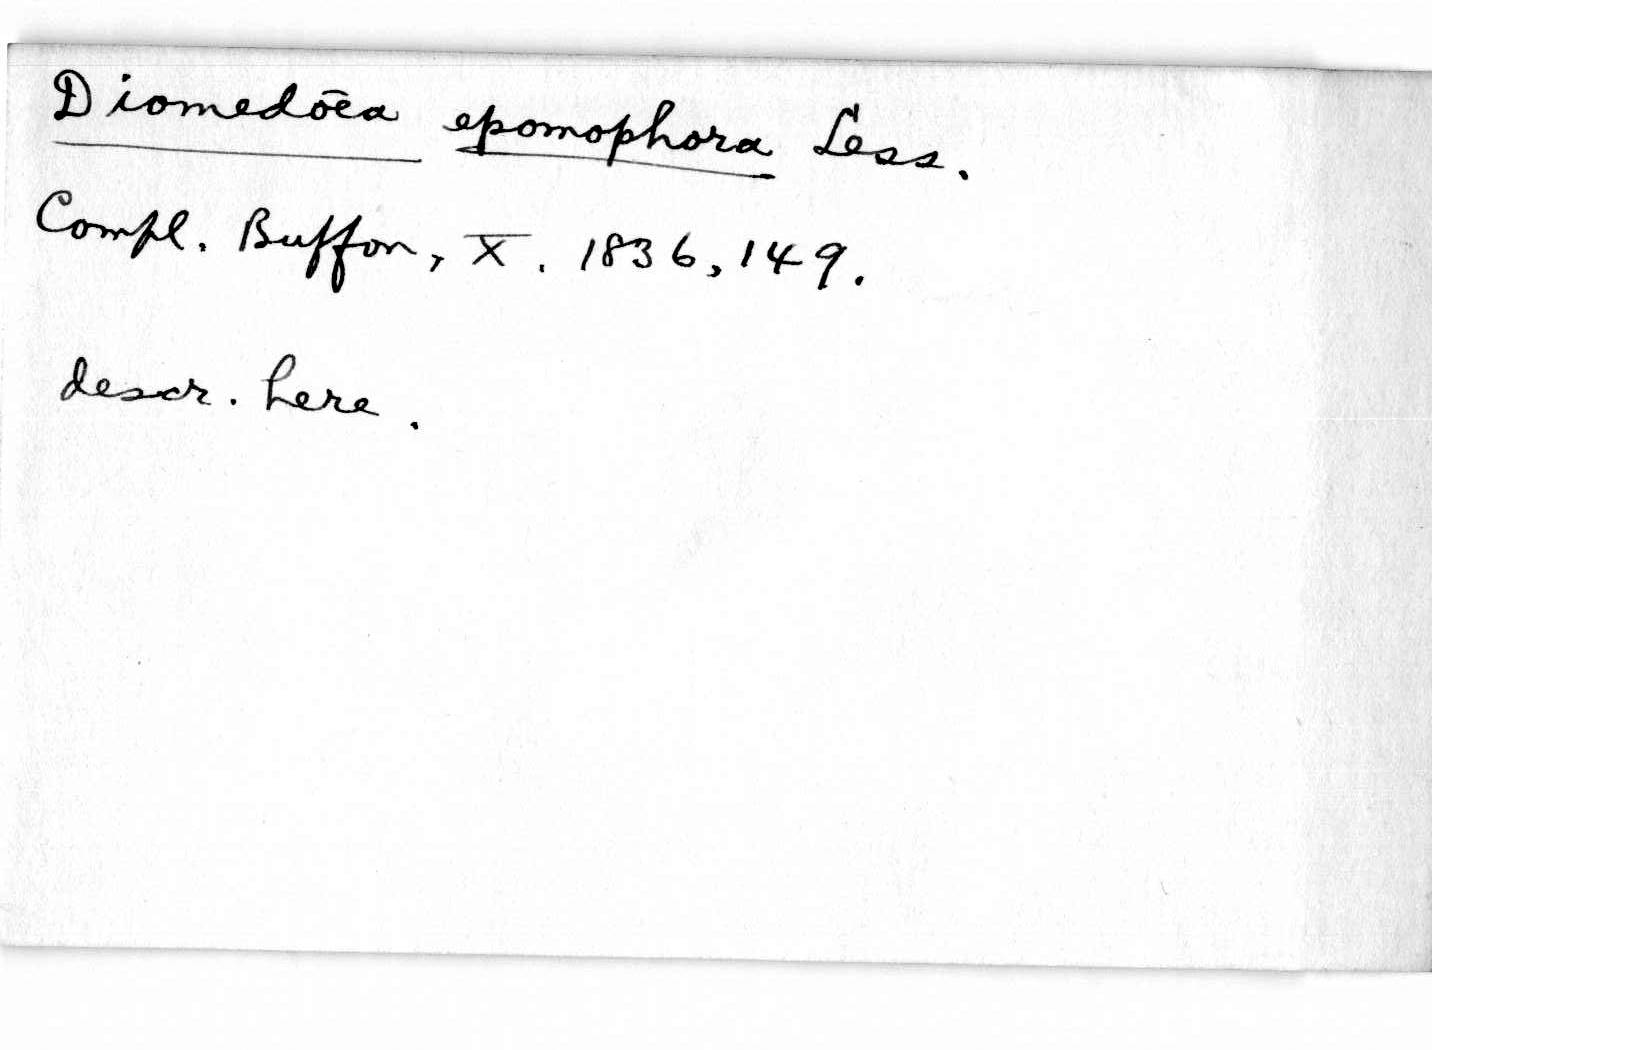 Diomedōea epomophora Less.
Compl. Buffon, X. 1836, 149.
descr. here.